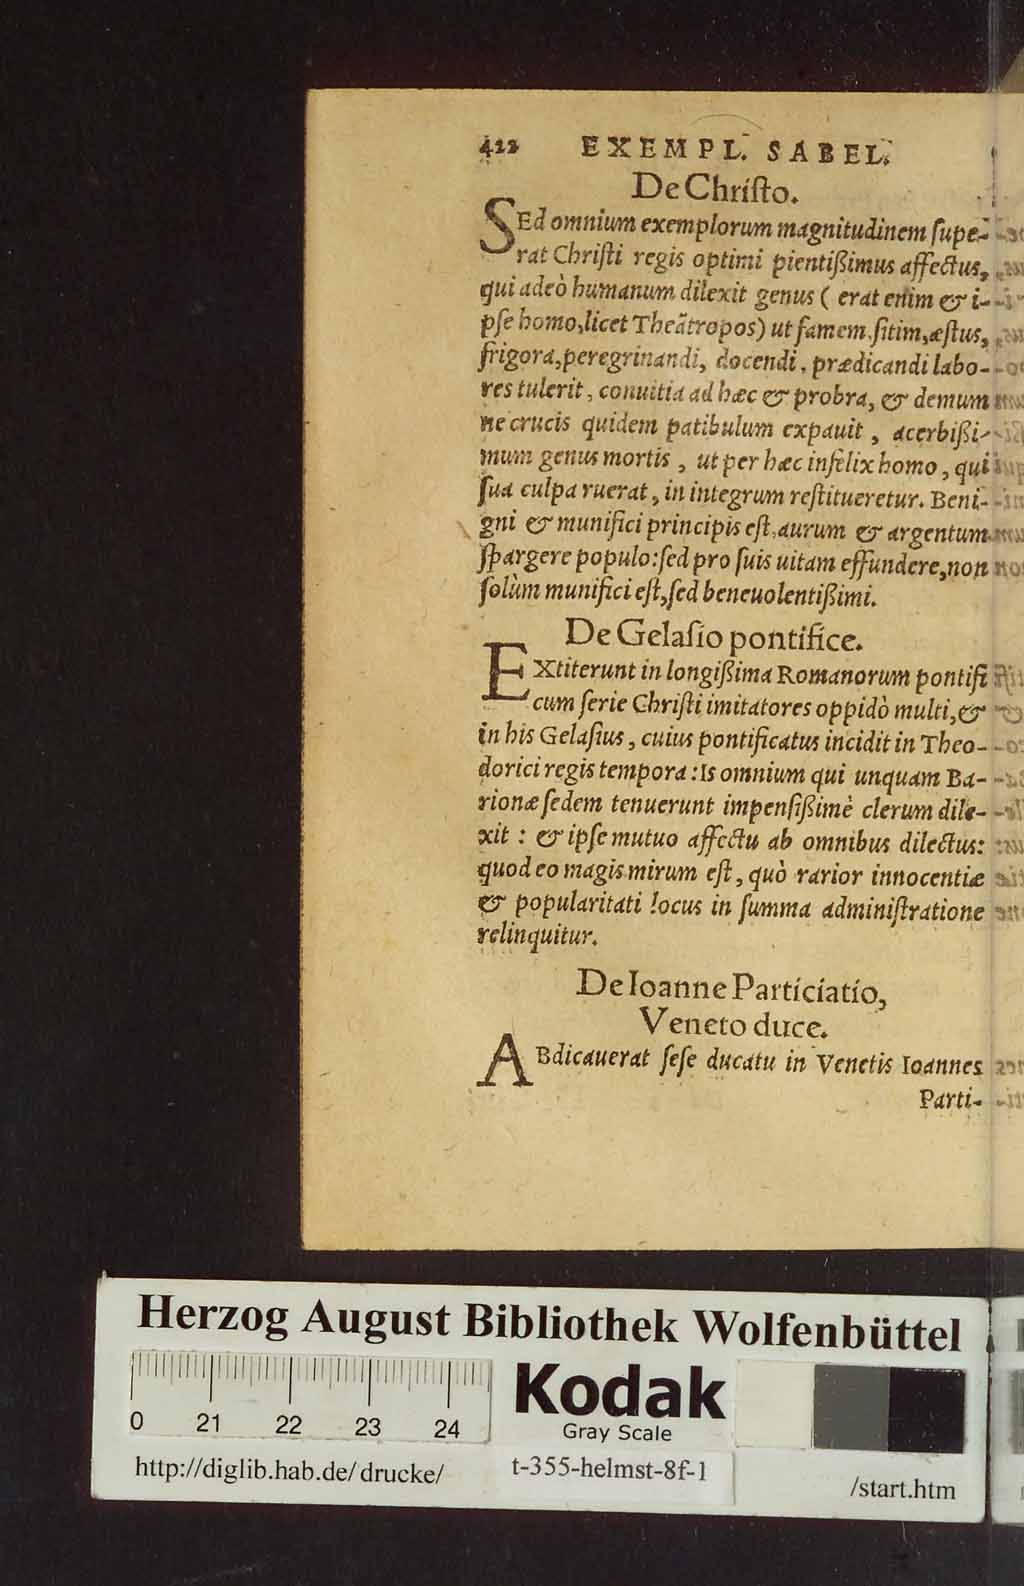 422 EXEMPL. SABEL.
De Christo.
SEd omnium exemplorum magnitudinem supe-
rat Christi regis optimi pientißimus affectus,
qui adeò humanum dilexit genus ( erat enim & i-
pse homo, licet Theãtropos) ut famem, sitim, æstus,
frigora, peregrinandi, docendi, prædicandi labo-
res tulerit, conuitia ad hæc & probra, & demum
ne crucis quidem patibulum expauit, acerbißi-
mum genus mortis, ut per hæc infelix homo, qui
sua culpa ruerat, in integrum restitueretur. Beni-
gni & munifici principis est, aurum & argentum
spargere populo: sed pro suis uitam effundere, non
solùm munifici est, sed beneuolentißimi.
De Gelasio pontifice.
EXtiterunt in longißima Romanorum pontifi
cum serie Christi imitatores oppidò multi, &
in his Gelasius, cuius pontificatus incidit in Theo-
dorici regis tempora: Is omnium qui unquam Ba-
rionæ sedem tenuerunt impensißimè clerum dile-
xit: & ipse mutuo affectu ab omnibus dilectus:
quod eo magis mirum est, quò rarior innocentiæ
& popularitati locus in summa administratione
relinquitur.
De Ioanne Particiatio,
Veneto duce.
ABdicauerat sese ducatu in Venetis Ioannes
Parti-
Herzog August Bibliothek Wolfenbüttel
0 21 22 23 24
Kodak
Gray Scale
http://diglib.hab.de/drucke/ t-355-helmst-8f-1 /start.htm